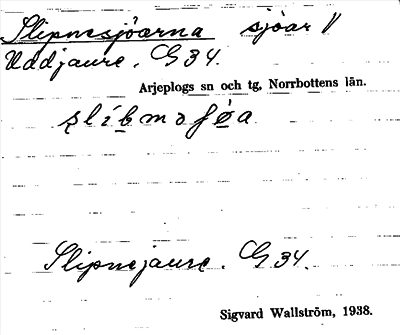 Slipnesjöarna sjöar V
Uddjaure. G 34.
Arjeplogs sn och tg, Norrbottens län.
Slipnejaure. G 34.
Sigvard Wallström, 1938.